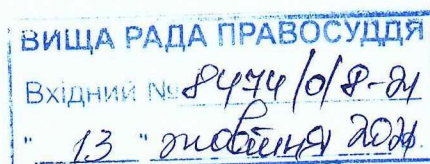 ВИЩА РАДА ПРАВОСУДДЯ
Вхідний № 8474/0/8-21
" 13 " жовтня 2021